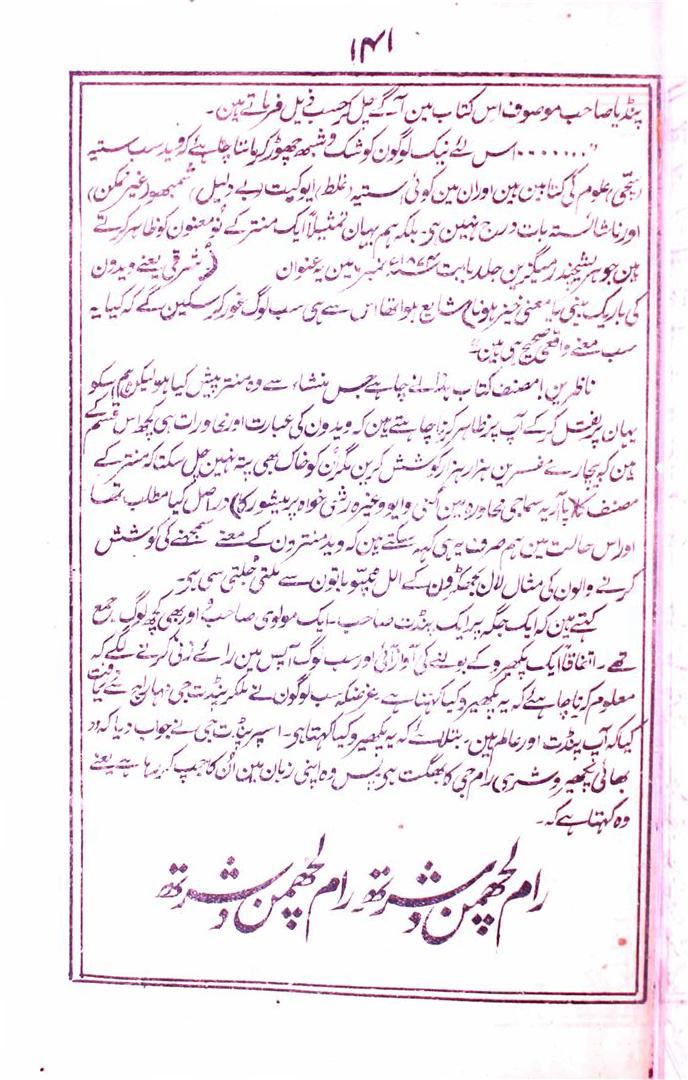 ۱۴۱
پنڈیا صاحب موصوف اس کتاب مین آگے چل کر حسب ذیل فرماتے ہین۔
"....... اس لئے نیک لوگون کو شک و شبھ چھوڑ کر ماننا چاہئے کہ وید سب ستیہ
(سچّی) علوم کی کتابین ہین اور ان مین کوئی استیہ (غلط) ایوکیت (بے دلیل) شمبھور (غیر ممکن)
اور ناشائستہ بات درج نہین ہی۔ بلکہ ہم یہان تمثیلاً ایک منتر کے نو معنون کو ظاہر کرتے
ہین جو ہریشچندر میگزین جلد بابت سنہ ۱۸۷۴ء نمبر مین بہ عنوان (شرقی یعنے ویدون
کی باریک بینی یا معنی خیز ہونا) شایع ہوا تھا اس سے ہی سب لوگ غور کر سکین گے کہ کیا یہ
سب معنے واقعی صحیح ہی ہین"
ناظرین! مصنف کتاب ہذا نے چاہے جس منشاء سے وہ منتر پیش کیا ہو لیکن ہم اسکو
یہان پر نقل کر کے آپ پر ظاہر کرنا چاہتے ہین کہ ویدون کی عبارت اور محاورات ہی کچھ اس قسم کے
ہین کہ بچارے مفسرین ہزار ہزار کوشش کرین مگر اُن کو خاک بھی پتہ نہین چل سکتا کہ منتر کے
مصنف کا (یا آریہ سماجی محاورہ مین اگنی وایو وغیرہ رشی خواہ پرمیشور کا) دراصل کیا مطلب تھا
اور اس حالت مین ہم صرف یہی کہہ سکتے ہین کہ وید منترون کے معنے سمجھنے کی کوشش
کرنے والون کی مثال لال بجھکڑون کے اٹل ٹپّو باتون سے ملتی جُلتی سی ہی۔
کہتے ہین کہ ایک جگہ پر ایک پنڈت صاحب۔ ایک مولوی صاحب اور بھی کچھ لوگ جمع
تھے۔ اتفاقاً ایک پکھیرو کے بولنے کی آواز آئی اور سب لوگ آپس مین رائے زنی کرنے لگے کہ
معلوم کرنا چاہئے کہ یہ پکھیرو کیا کہتا ہے۔ غرضکہ سب لوگون نے ملکر پنڈت جی مہاراج سے دریافت
کیا کہ آپ پنڈت اور عالم ہین۔ بتلائے کہ یہ پکھیرو کیا کہتا ہی۔ اسپر پنڈت جی نے جواب دیا کہ
بھائی پکھیرو شری رام جی کا بھگت ہی پس وہ اپنی زبان مین اُن کا جپ کر رہا ہے یعنے
وہ کہتا ہے کہ۔
رام لچھمن دشرتھ رام لچھمن دشرتھ